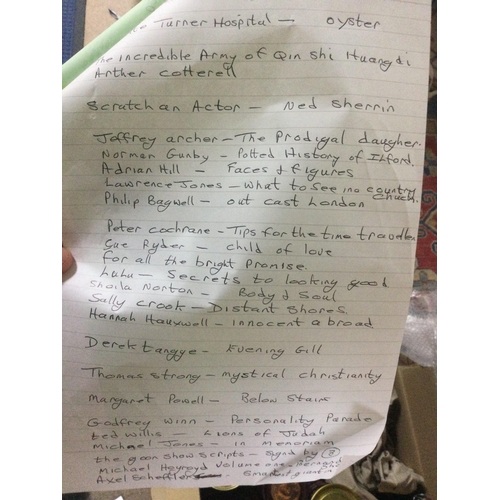 Turner Hospital - oyster
the incredible Army of Qin Shi Huangdi
Arther cotterell
Scratch an Actor - Ned Sherrin
Jeffrey archer - The Prodigal daugher.
Norman Gunby - Potted History of Ilford.
Adrian Hill - Faces & figures
Lawrence Jones - what to see in a country church.
Philip Bagwell - out cast London
Peter cochrane - Tips for the time traveller
Sue Ryder - child of love
for all the bright promise.
Lulu - Secrets to looking good
Sheila Norton - Body & Soul
Sally crook - Distant Shores.
Hannah Hauxwell - innocent abroad
Derek tangye - Evening Gill
Thomas strong - mystical christianity
Margaret Powell - Below Stairs
Godfrey winn - Personality Parade
ted willis - Lions of Judah
Michael Jones - in memoriam
the goon show scripts - Signd by 3
Michael volume one - Bernard
Axel Scheffler - Smartest giant in